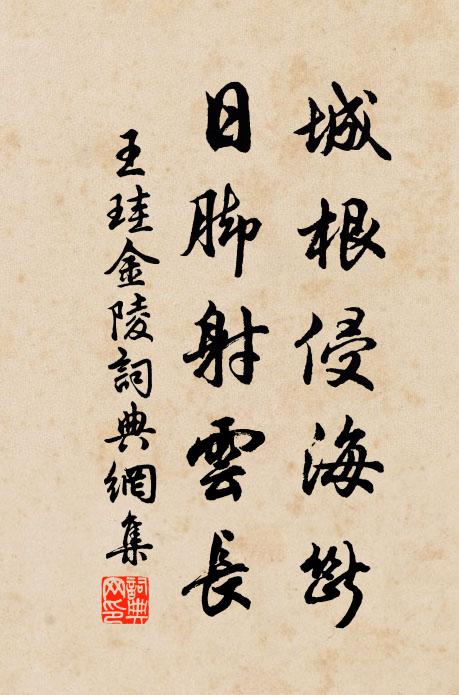 城根侵海斷
日脚射雲長
王珪金陵詞典網集
詞典網印